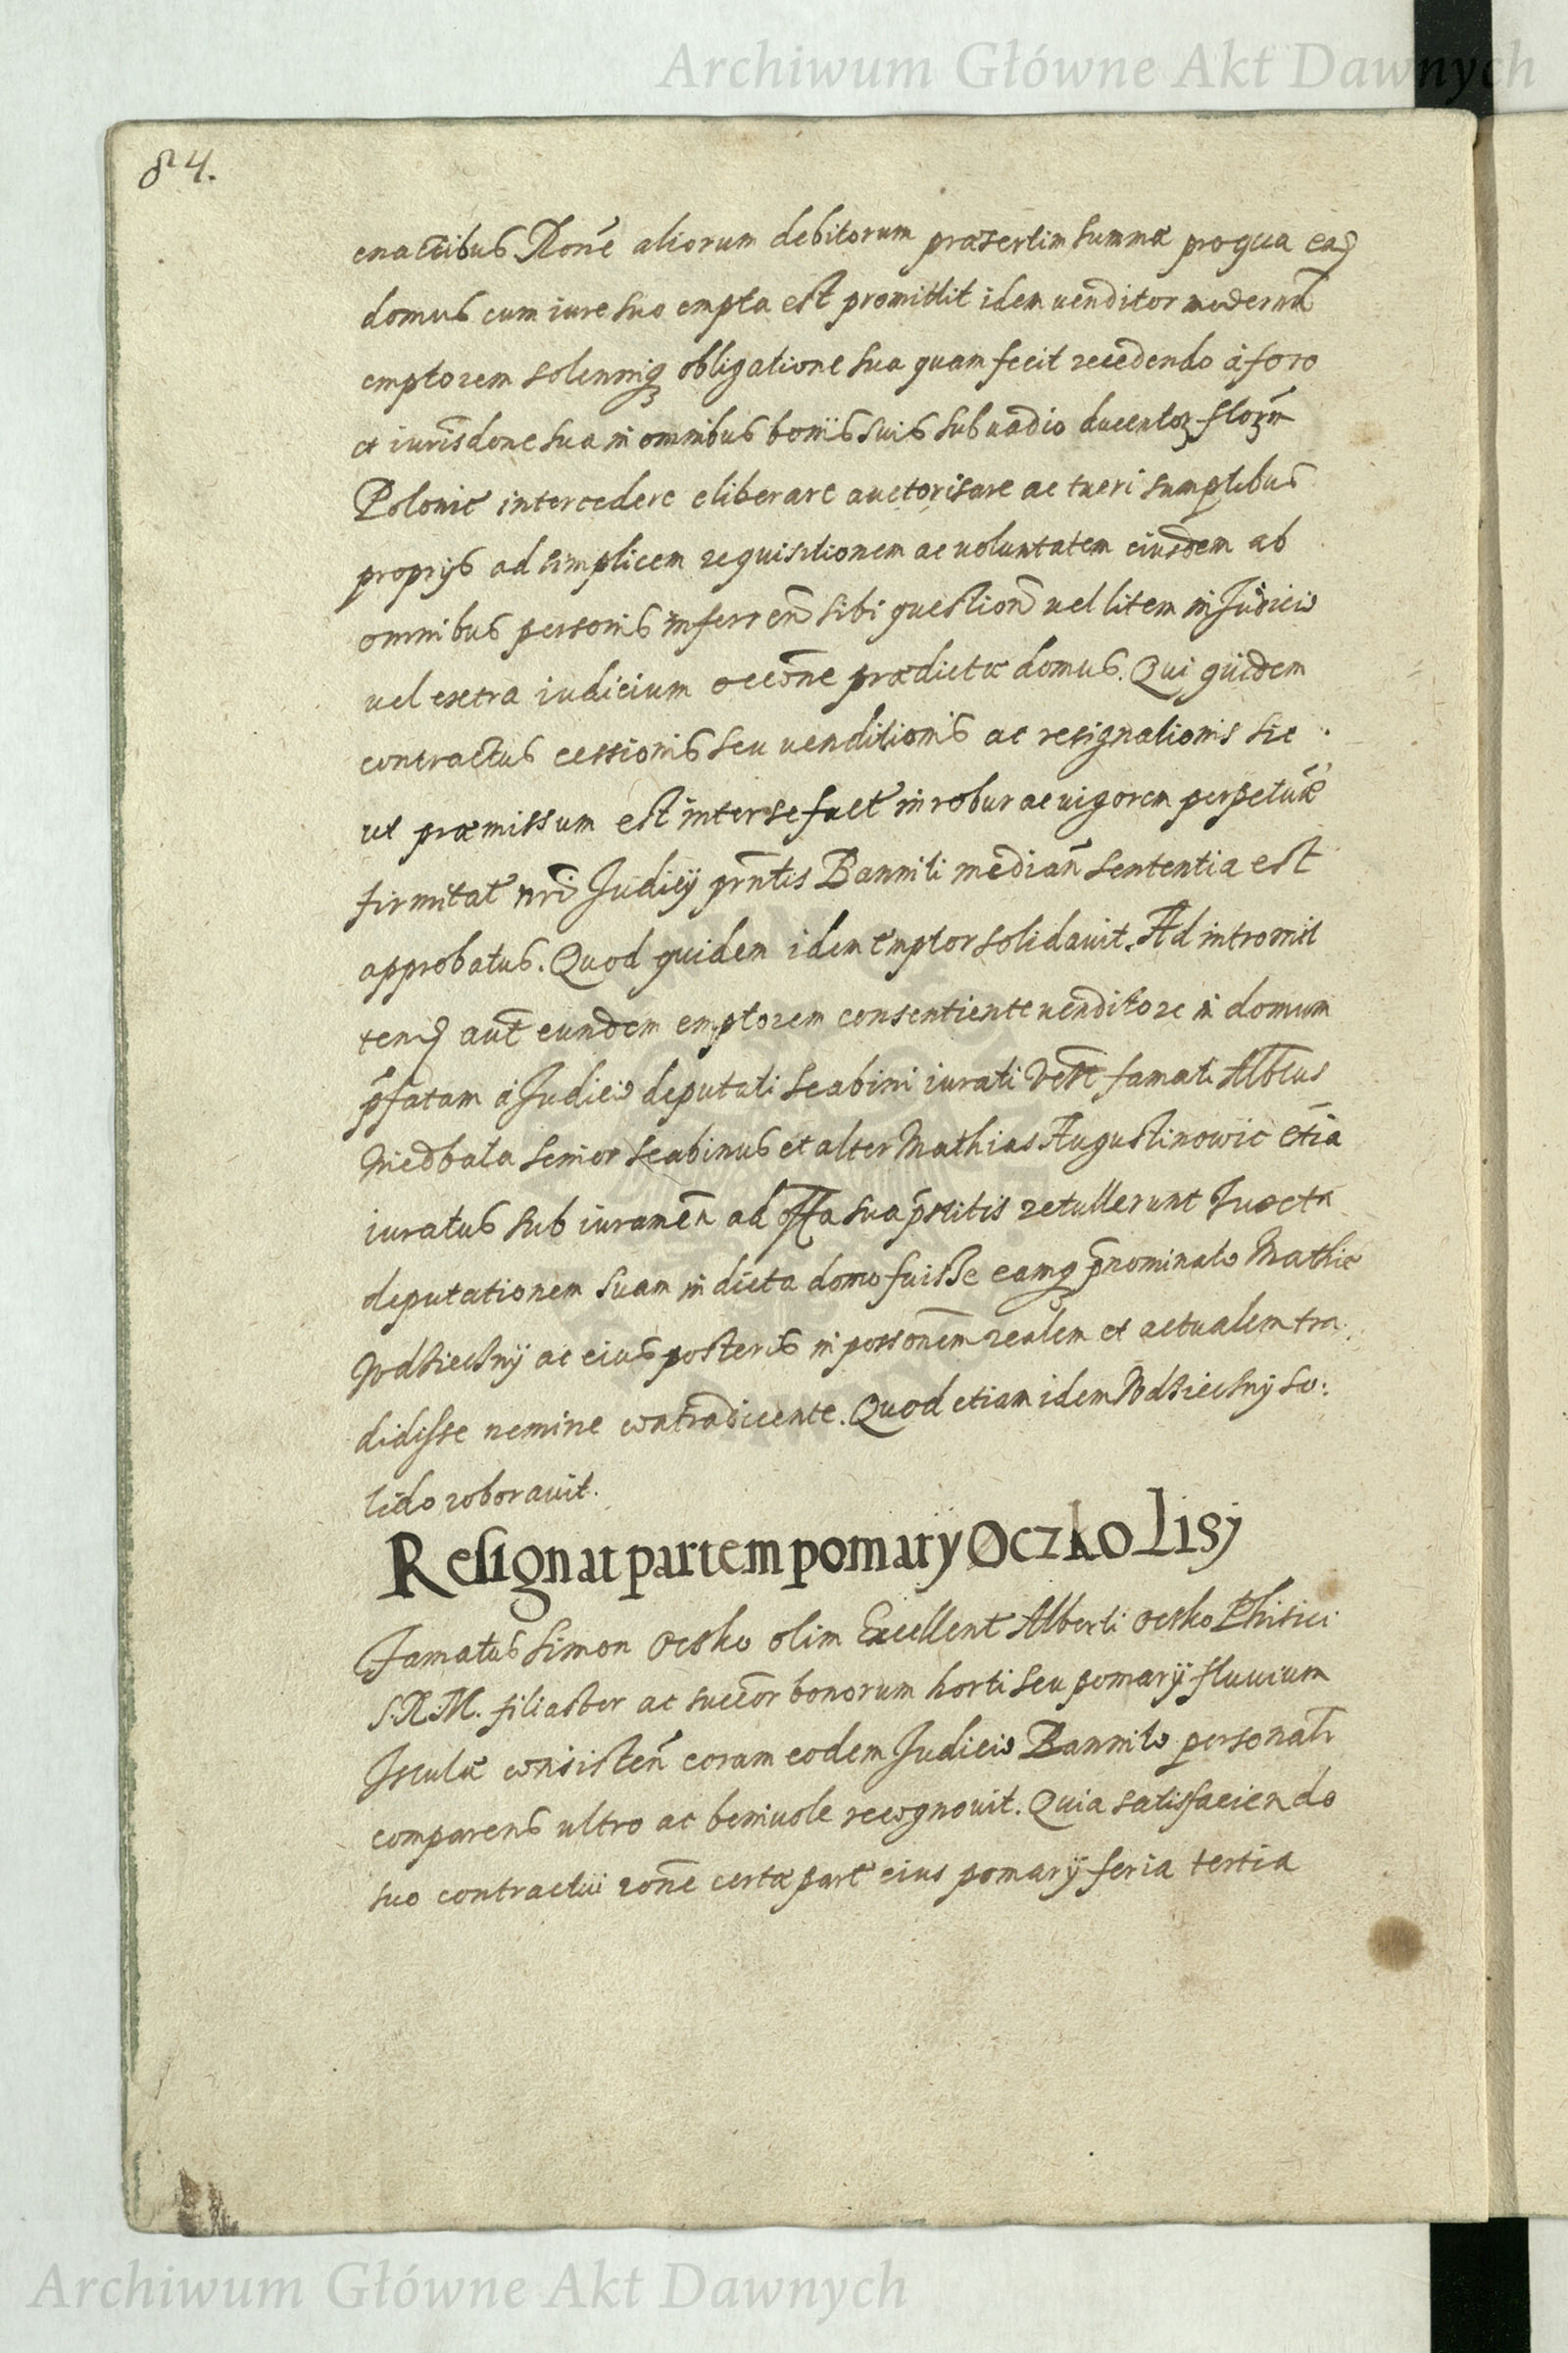 Archiwum Główne Akt Dawnych
84.
Rõne aliorum debitorum præsertim summæ pro qua
domus cum iure suo empta est promittit idem uenditor
emptorem solenniqꝫ obligatione sua quam fecit recedendo à foro
et iurisdone sua in omnibus bonis suis sub uadio ducentoꝝ
Polonic intercedere eliberare auctorisare ac tueri sumptibus
proprijs ad simplicem requisitionem ac uoluntatem eiusdem ab
omnibus personis sibi question uel litem in Judicio
uel extra iudicium occõne prædictæ domus. Qui quidem
contractus cessionis seu uenditionis ac resignationis sic
ut præmissum est inter se fact in robur ac uigorem perpetuæ
firmitat nri Judicij prntis Banniti median sententia est
approbatus. Quod quidem idem emptor solidauit. Ad intromit
tend aut eundem emptorem consentiente uenditore in domum
pfatam à Judicio deputati scabini iurati famati Albtus
Niedbala senior scabinus et alter Mathias Augustinowic etia
iuratus sub iuramen ad offa sua pstitis retullerunt Juxta
deputationem suam in dicta domo fuisse eamqꝫ pnominato Mathie
Wdziecsny ac eius posteris in possonem realem et actualem tra:
didisse nemine contradicente. Quod etiam idem Wdziecsny so:
lido roborauit.
Resignat partem pomarij Oczko Lisj
Famatus Simon Ocsko olim Excellent Alberti Ocsko Phisici
S.R.M. filiaster ac succor bonorum horti seu pomarij fluuium
Isculæ consisten coram eodem Judicio Bannito personatr
comparens ultro ac beniuole recognouit. Quia satisfaciendo
suo contractui rõne certæ part eius pomarij feria tertia
Archiwum Główne Akt Dawnych